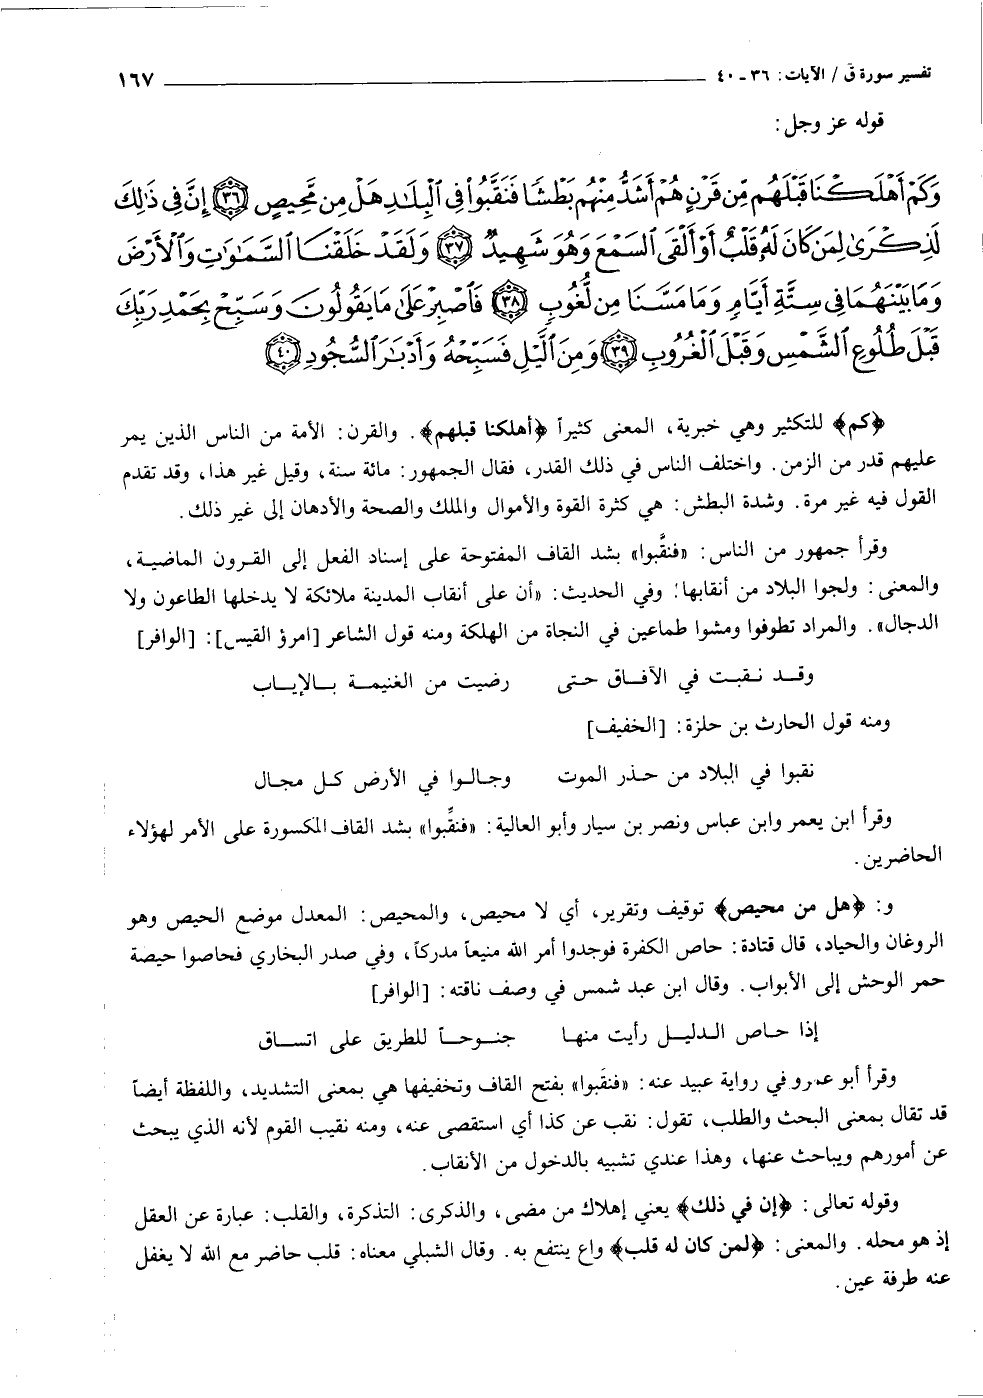 تفسير سورة ق / الآيات: ٣٦ - ٤٠ ١٦٧
قوله عز وجل:
وَكَمْ أَهْلَكْنَا قَبْلَهُم مِّن قَرْنٍ هُمْ أَشَدُّ مِنْهُم بَطْشًا فَنَقَّبُوا۟ فِى ٱلْبِلَـٰدِ هَلْ مِن مَّحِيصٍ ﴿٣٦﴾ إِنَّ فِى ذَٰلِكَ
لَذِكْرَىٰ لِمَن كَانَ لَهُۥ قَلْبٌ أَوْ أَلْقَى ٱلسَّمْعَ وَهُوَ شَهِيدٌ ﴿٣٧﴾ وَلَقَدْ خَلَقْنَا ٱلسَّمَـٰوَٰتِ وَٱلْأَرْضَ
وَمَا بَيْنَهُمَا فِى سِتَّةِ أَيَّامٍ وَمَا مَسَّنَا مِن لُّغُوبٍ ﴿٣٨﴾ فَٱصْبِرْ عَلَىٰ مَا يَقُولُونَ وَسَبِّحْ بِحَمْدِ رَبِّكَ
قَبْلَ طُلُوعِ ٱلشَّمْسِ وَقَبْلَ ٱلْغُرُوبِ ﴿٣٩﴾ وَمِنَ ٱلَّيْلِ فَسَبِّحْهُ وَأَدْبَـٰرَ ٱلسُّجُودِ ﴿٤٠﴾
﴿كم﴾ للتكثير وهي خبرية، المعنى كثيراً ﴿أهلكنا قبلهم﴾. والقرن: الأمة من الناس الذين يمر
عليهم قدر من الزمن. واختلف الناس في ذلك القدر، فقال الجمهور: مائة سنة، وقيل غير هذا، وقد تقدم
القول فيه غير مرة. وشدة البطش: هي كثرة القوة والأموال والملك والصحة والأدهان إلى غير ذلك.
وقرأ جمهور من الناس: «فنقَّبوا» بشد القاف المفتوحة على إسناد الفعل إلى القرون الماضية،
والمعنى: ولجوا البلاد من أنقابها؛ وفي الحديث: «أن على أنقاب المدينة ملائكة لا يدخلها الطاعون ولا
الدجال». والمراد تطوفوا ومشوا طماعين في النجاة من الهلكة ومنه قول الشاعر [امرؤ القيس]: [الوافر]
وقد نقبت في الآفاق حتى رضيت من الغنيمة بالإياب
ومنه قول الحارث بن حلزة: [الخفيف]
نقبوا في البلاد من حذر الموت وجالوا في الأرض كل مجال
وقرأ ابن يعمر وابن عباس ونصر بن سيار وأبو العالية: «فنقِّبوا» بشد القاف المكسورة على الأمر لهؤلاء
الحاضرين.
و: ﴿هل من محيص﴾ توقيف وتقرير، أي لا محيص، والمحيص: المعدل موضع الحيص وهو
الروغان والحياد، قال قتادة: حاص الكفرة فوجدوا أمر الله منيعاً مدركاً، وفي صدر البخاري فحاصوا حيصة
حمر الوحش إلى الأبواب. وقال ابن عبد شمس في وصف ناقته: [الوافر]
إذا حاص الدليل رأيت منها جنوحاً للطريق على اتساق
وقرأ أبو عمرو في رواية عبيد عنه: «فنقَبوا» بفتح القاف وتخفيفها هي بمعنى التشديد، واللفظة أيضاً
قد تقال بمعنى البحث والطلب، تقول: نقب عن كذا أي استقصى عنه، ومنه نقيب القوم لأنه الذي يبحث
عن أمورهم ويباحث عنها، وهذا عندي تشبيه بالدخول من الأنقاب.
وقوله تعالى: ﴿إن في ذلك﴾ يعني إهلاك من مضى، والذكرى: التذكرة، والقلب: عبارة عن العقل
إذ هو محله. والمعنى: ﴿لمن كان له قلب﴾ واع ينتفع به. وقال الشبلي معناه: قلب حاضر مع الله لا يغفل
عنه طرفة عين.